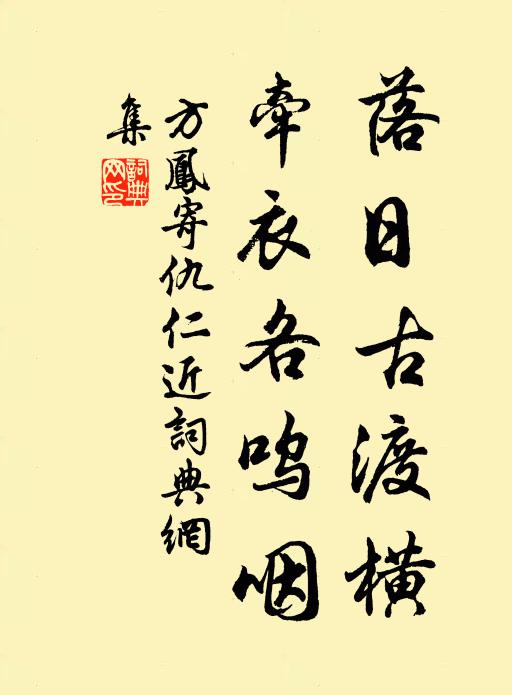 落日古渡橫
牽衣各嗚咽
方鳳寄仇仁近詞典網
集
詞典
网印